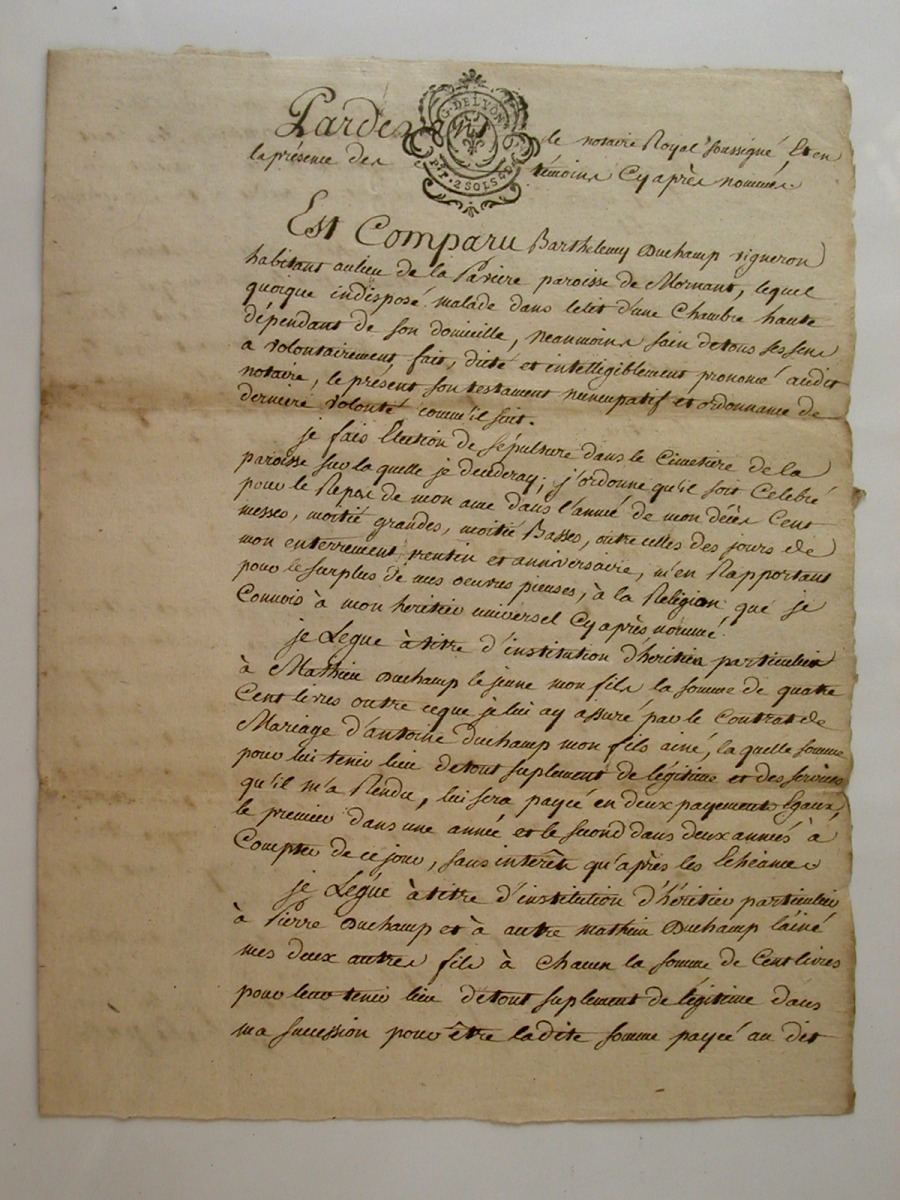 Pardevant le notaire Royal soussigné Et en
G. DE LYON
P. PAP. 2 SOLS 4 D.
la présence des témoins Cy après nommés
Est Comparu Barthelemy Duchamp vigneron
habitant au lieu de la Pavière paroisse de Mornant, lequel
quoique indisposé malade dans le lit d'une Chambre haute
dépendant de son domicille, neanmoins sain de tous ses sens
a volontairement fait, dicté et intelligiblement prononcé audit
notaire, le présent son testament nuncupatif et ordonnance de
derniere volonté comme il suit.
je fais Election de sépulture dans le Cimetière de la
paroisse sur la quelle je decederay; j'ordonne qu'il soit Celebré
pour le Repos de mon ame dans l'année de mon décès Cent
messes, moitié grandes, moitié Basses, outre celles des jours de
mon enterrement, rentin et anniversaire, m'en Rapportant
pour le surplus de mes oeuvres pieuses, à la Religion que je
Connois à mon heritier universel Cy après nommé.
je Legue à titre d'institution d'héritier particulier
à Mathieu Duchamp le jeune mon fils la somme de quatre
Cent livres outre ce que je lui ay assuré par le Contrat de
Mariage d'antoine duchamp mon fils ainé, la quelle somme
pour lui tenir lieu de tout suplement de légitime et des services
qu'il m'a Rendu, lui sera payée en deux payements Egaux,
le premier dans une année et le second dans deux années à
Compter de ce jour, sans interêts qu'après les Echéances
je Legue à titre d'institution d'héritier particulier
à Pierre Duchamp et à autre mathieu Duchamp l'ainé
mes deux autres fils à chacun la somme de Cent livres
pour leur tenir lieu de tout suplement de légitime dans
ma succession pour être la dite somme payée au dit